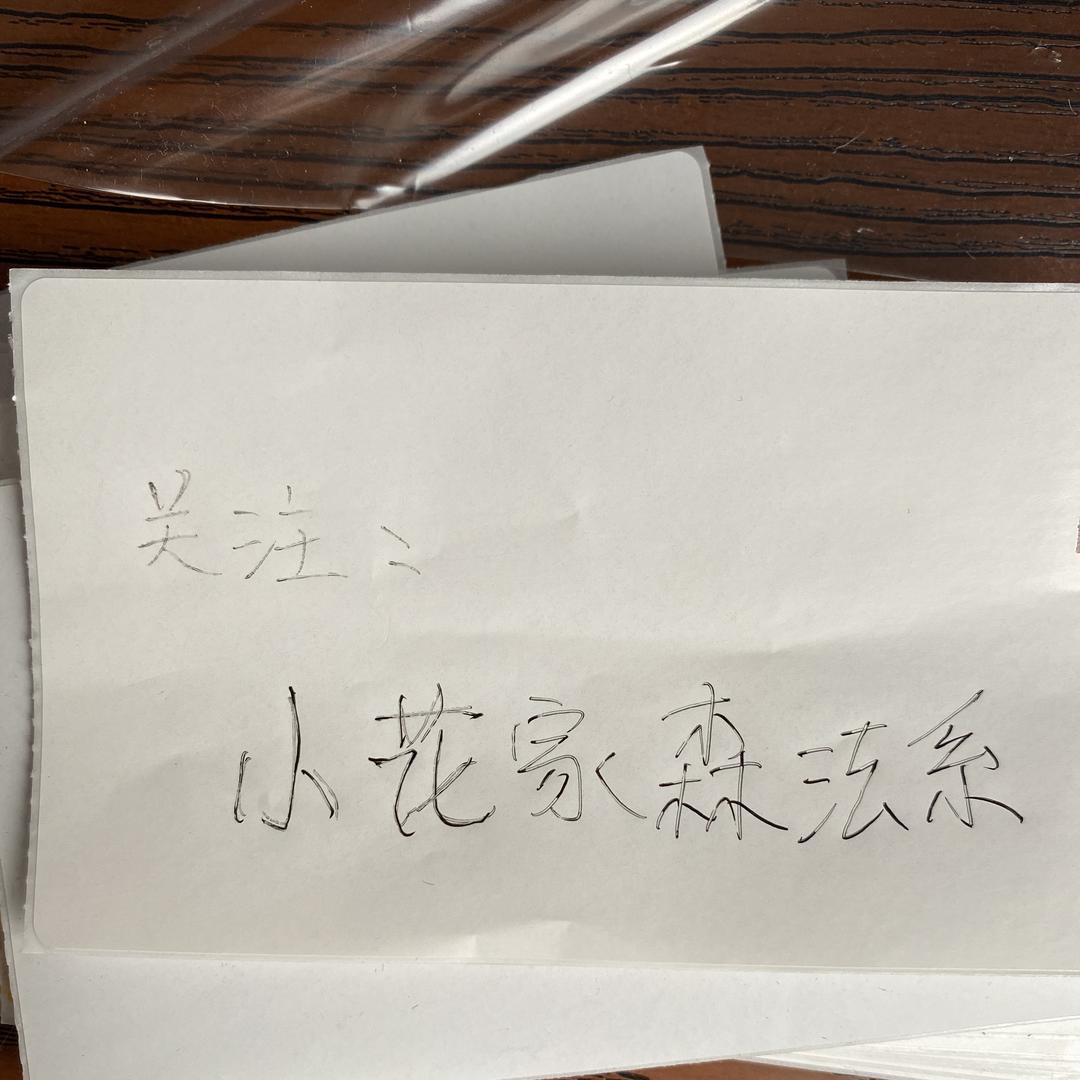 关注:
小花家森法系